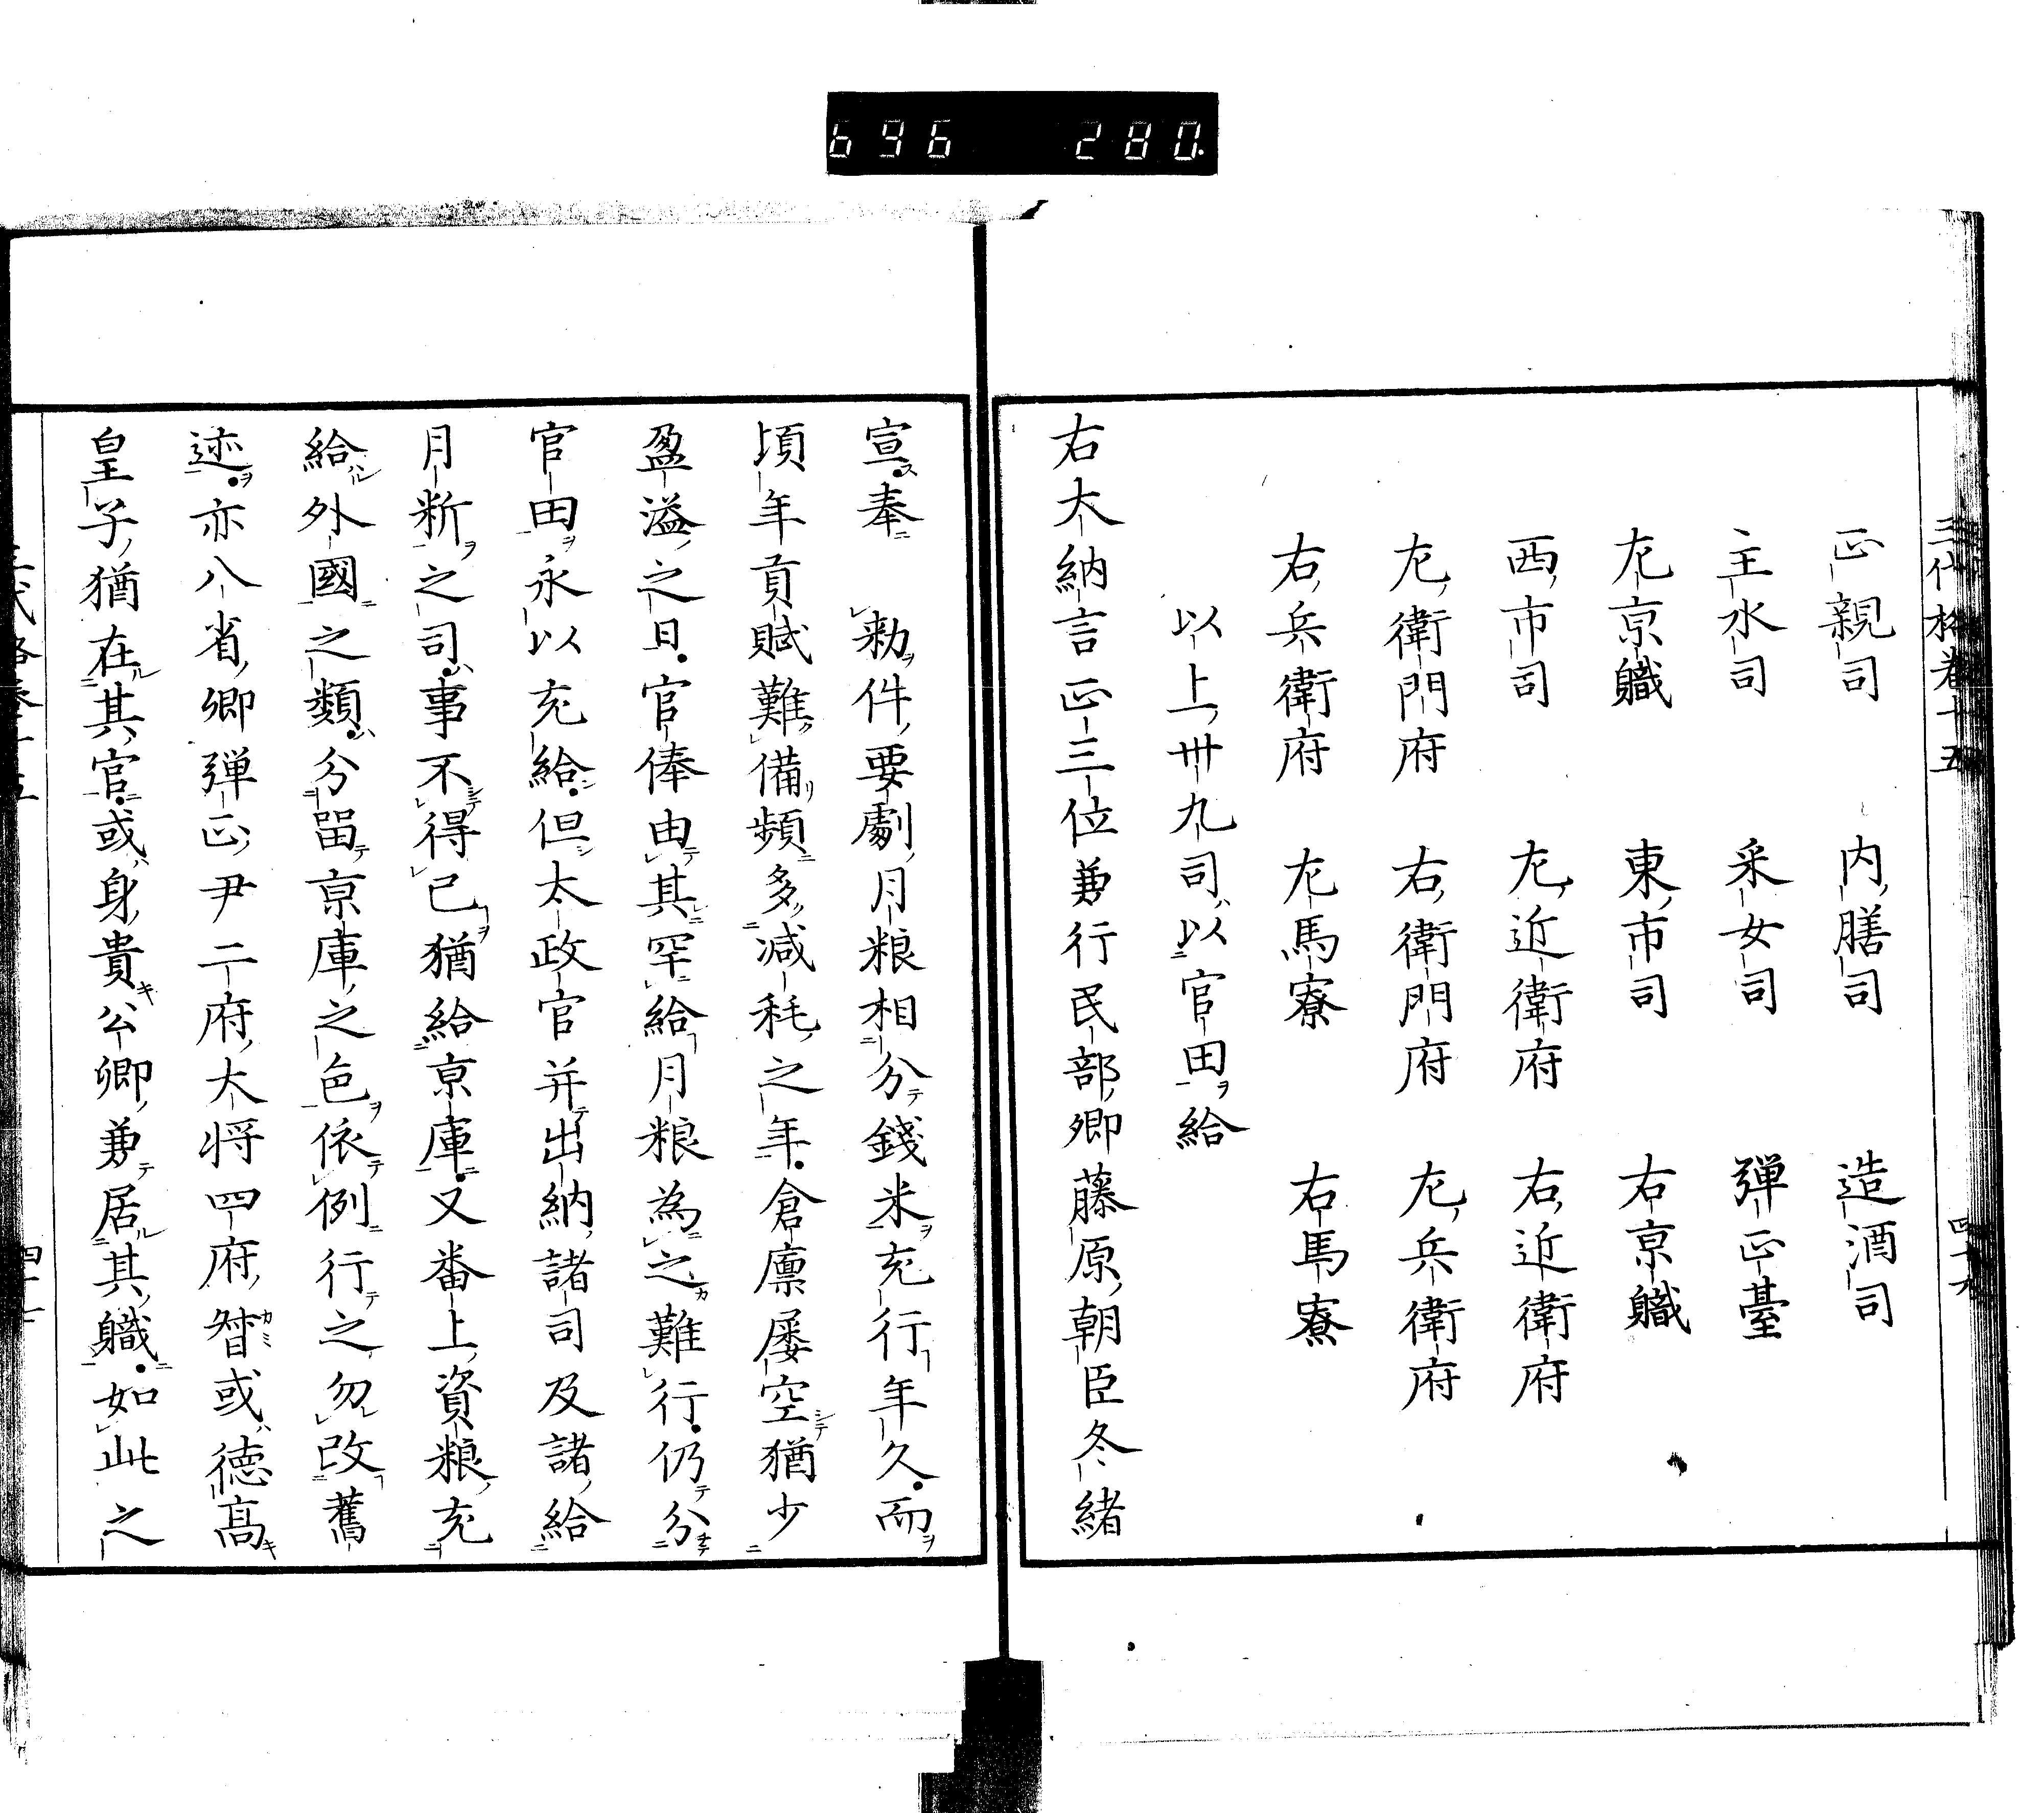 696 280
三代格卷十五 四十九
正親司 内膳司 造酒司
主水司 采女司 弾正臺
左京職 東市司 右京職
西市司 左近衛府 右近衛府
左衛門府 右衛門府 左兵衛府
右兵衛府 左馬寮 右馬寮
以上卅九司ハ以官田ヲ給
右大納言正三位兼行民部卿藤原朝臣冬緒
宣奉 勅件要劇月粮相分錢米充行年久而
頃年貢賦難備頻多減耗之年倉廪屡空猶少
盈溢之日官俸由其罕給月粮為之難行仍分
官田永以充給但太政官并出納諸司及諸給
月料之司事不得已猶給京庫又番上資粮充
給外國之類分留京庫之色依例行之勿改舊
迹亦八省卿弾正尹二府大将四府督或德高
皇子猶在其官或身貴公卿兼居其職如此之